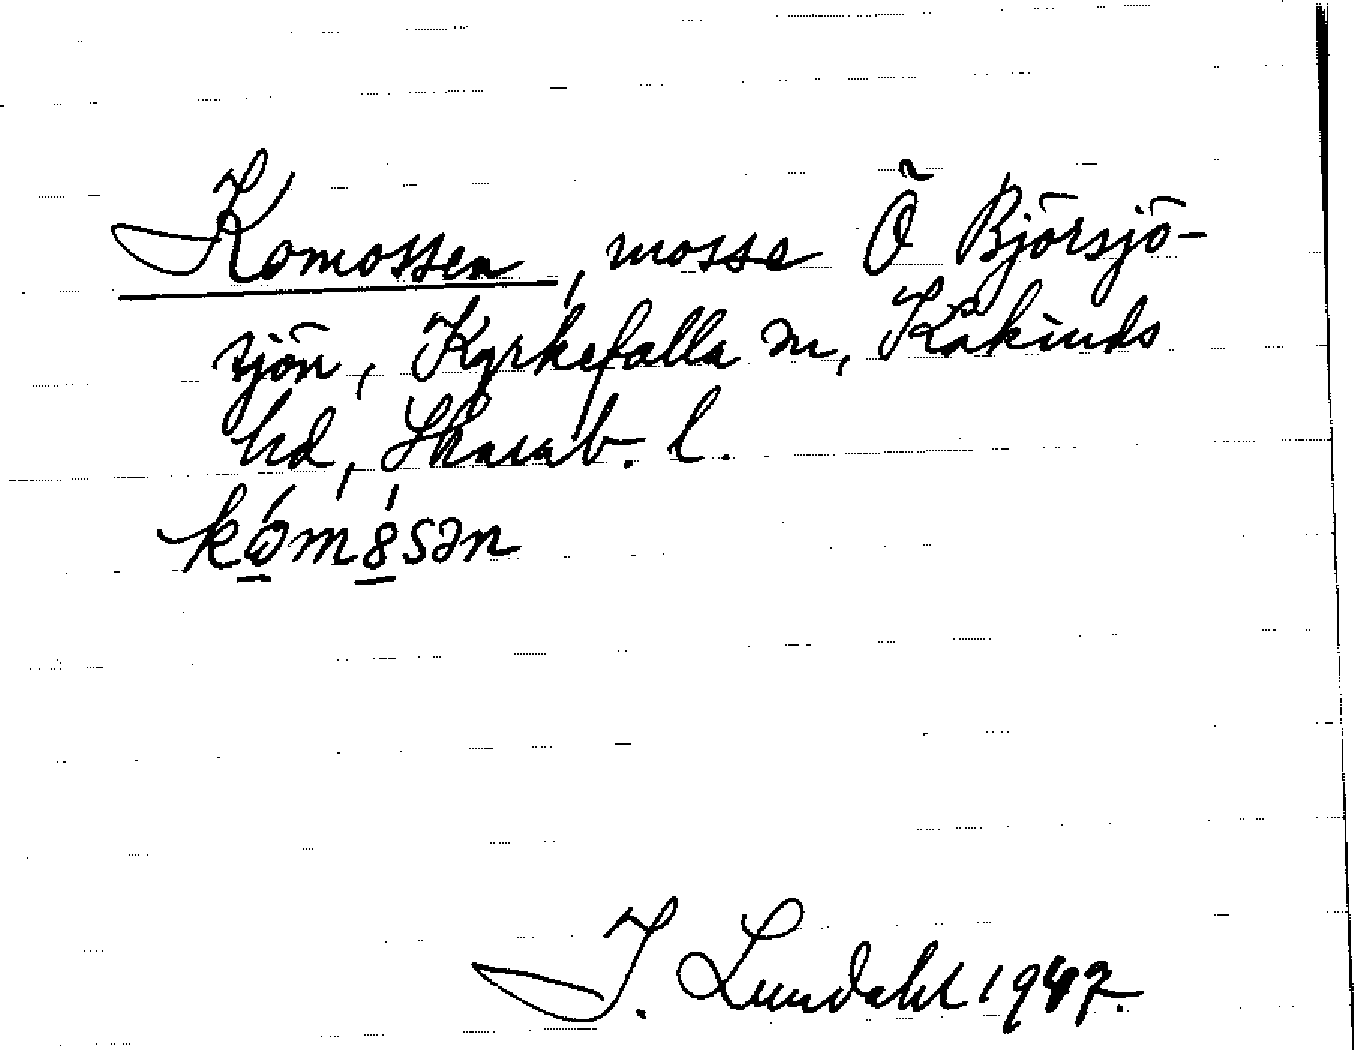 Komossen, mosse Ö Björsjö-
sjön, Kyrkefalla sn, Kåkinds
hd, Skarab. l.
kómósən
I. Lundahl 1947.